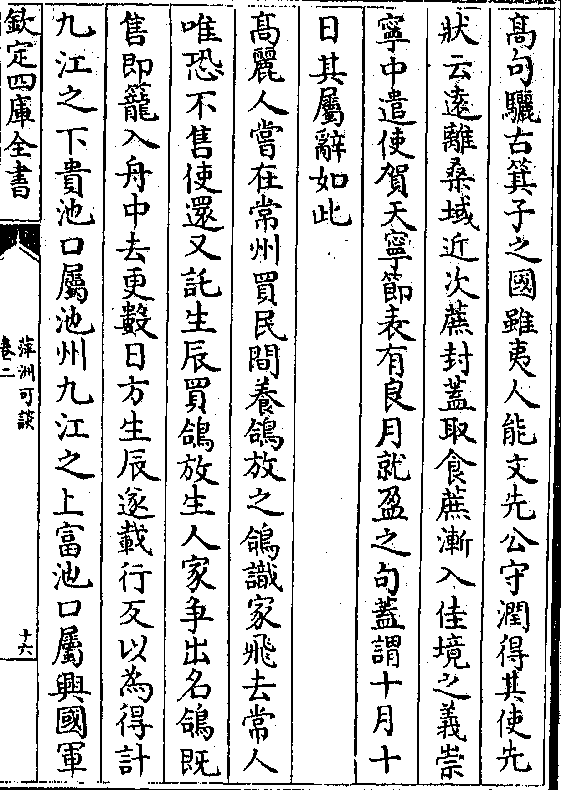 髙句驪古箕子之國雖夷人能文先公守潤得其使先
狀云遠離桑域近次蔗封蓋取食蔗漸入佳境之義崇
寧中遣使賀天寧節表有良月就盈之句蓋謂十月十
日其屬辭如此
髙麗人嘗在常州買民間養鴿放之鴿識家飛去常人
唯恐不售使還又託生辰買鴿放生人家爭出名鴿既
售即籠入舟中去更數日方生辰遂載行反以為得計
九江之下貴池口屬池州九江之上富池口屬興國軍
欽定四庫全書
萍洲可談
卷二
十六